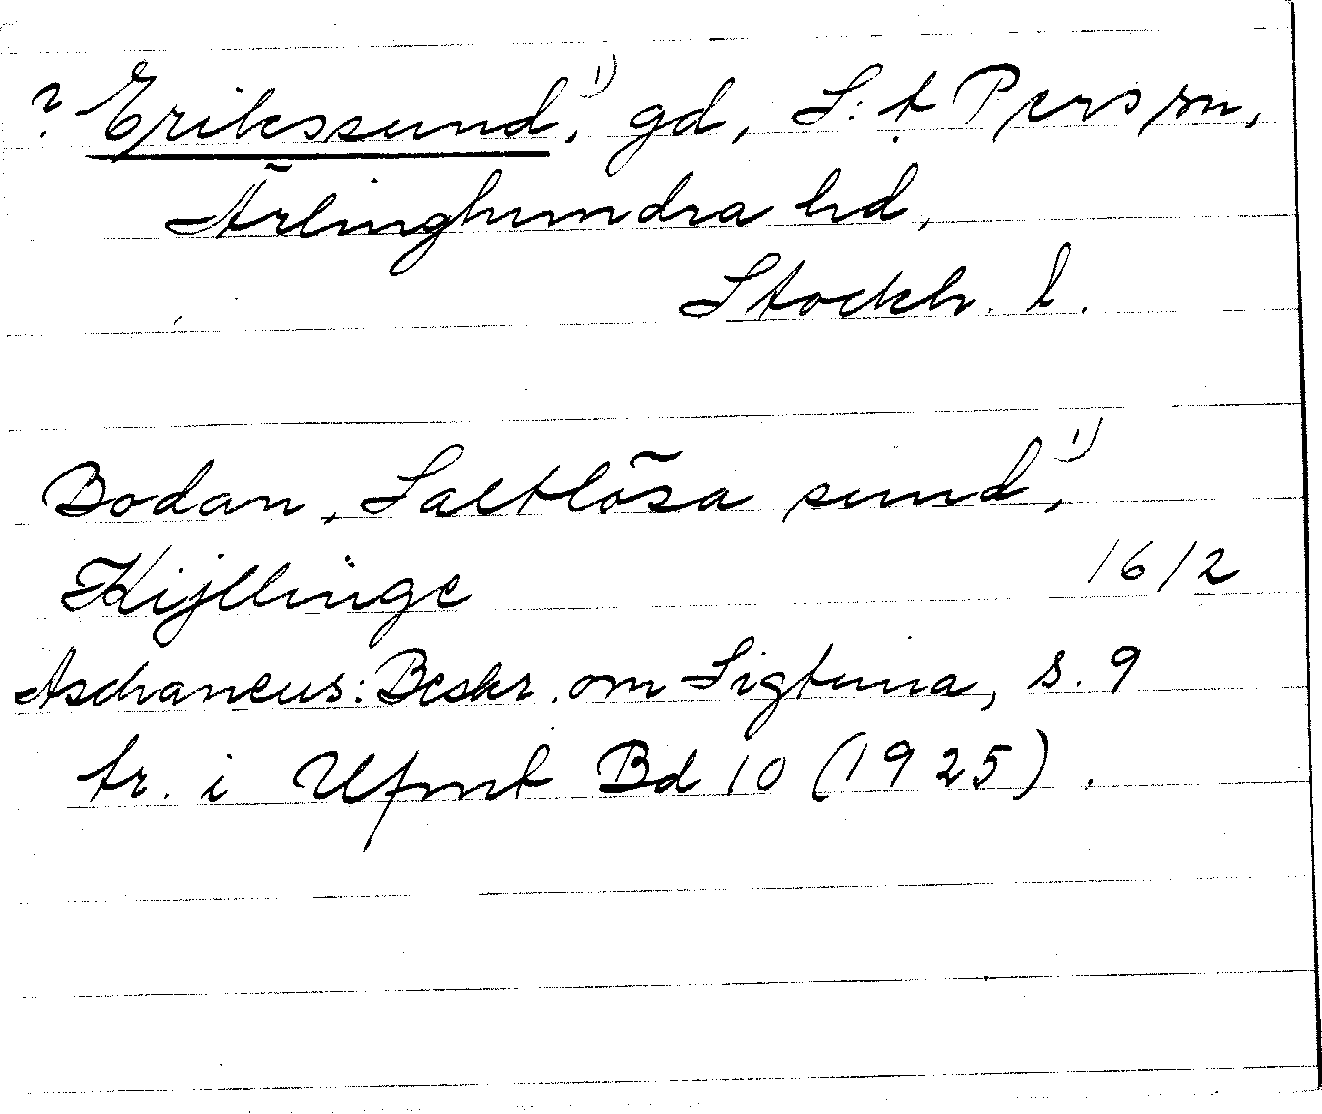 ? Erikssund,¹⁾ gd, S:t Pers sn,
Ärlinghundra hd,
Stockh. l.
Bodan, Saltlösa sund,¹⁾
Kijllinge 1612
Aschaneus: Beskr. om Sigtuna, s. 9
tr. i Ufmt Bd 10 (1925).